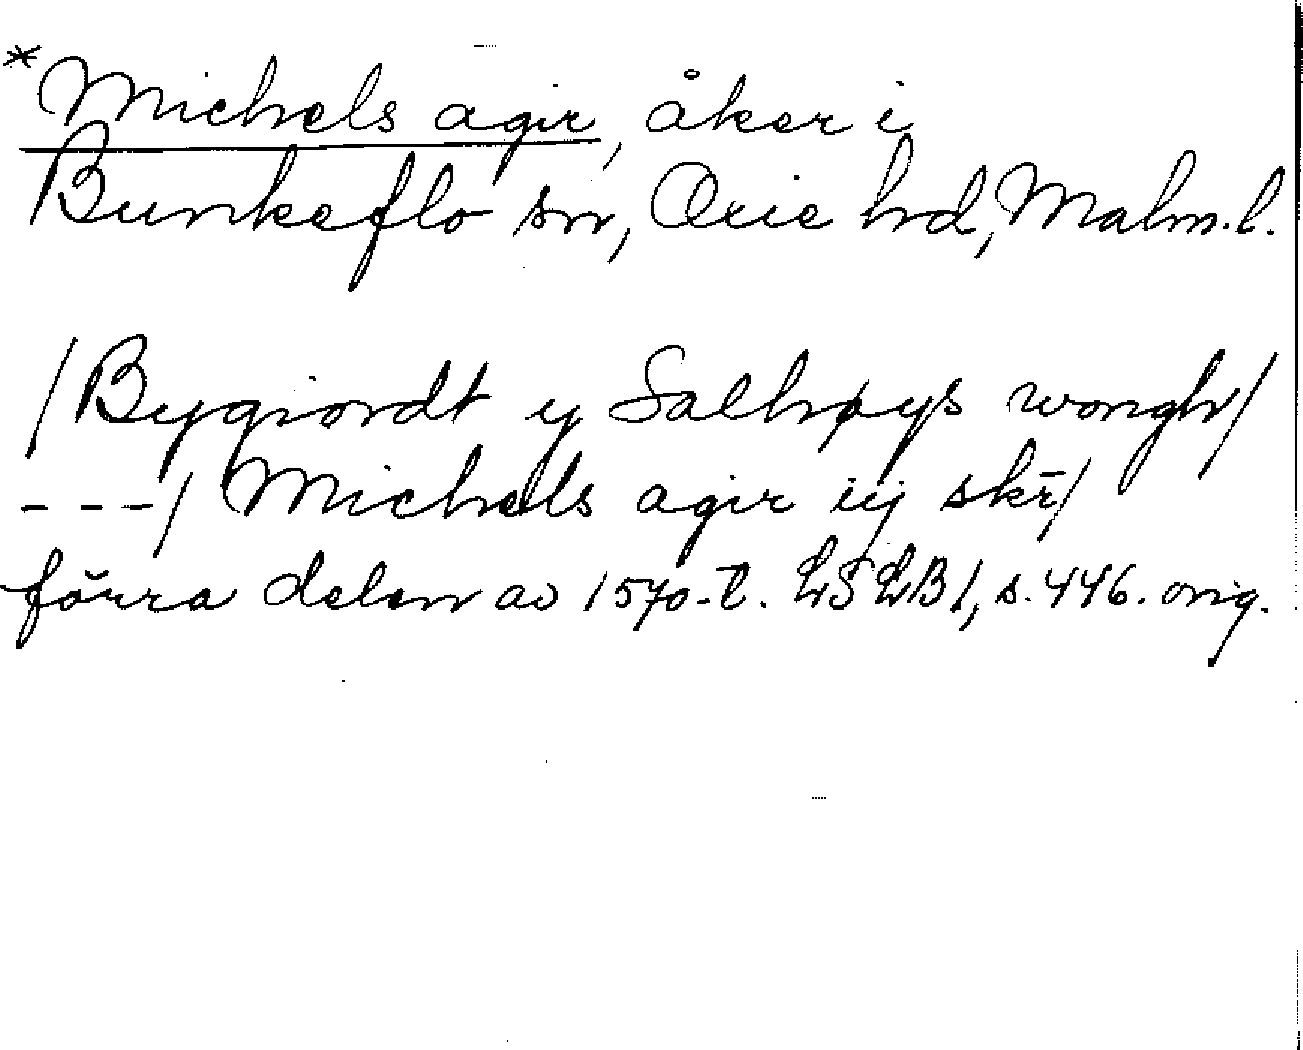 *Michels agir, åker i
Bunkeflo sn, Oxie hd, Malm.l.
/Bygiordt y Salhøys wongh/
---/ Michels agir iij skr̄/
förra delen av 1570-t. LSLB 1, s. 446. orig.